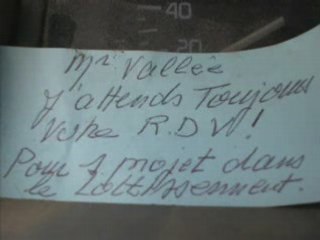 40
20
Mr. Vallée
J'attends Toujours
Votre R.D.V!
Pour 1 projet dans
le Lotissement.